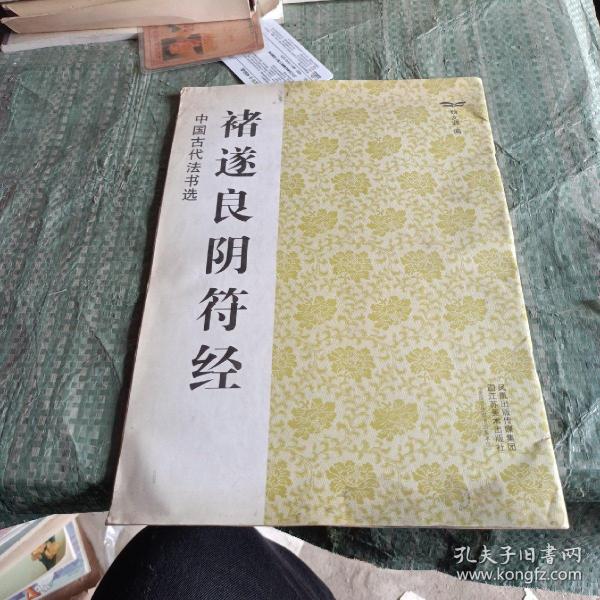 褚遂良阴符经
中国古代法书选
凤凰出版传媒集团
江苏美术出版社
孔夫子旧书网
www.kongfz.com